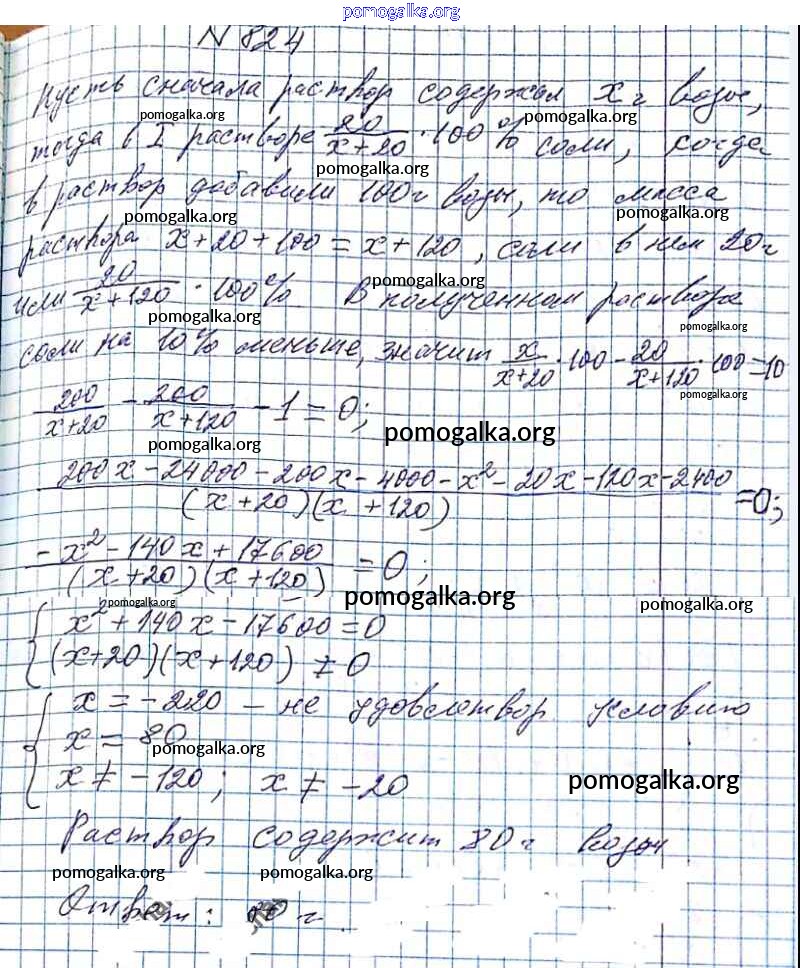 pomogalka.org
N 824
Пусть сначала раствор содержал x г воды,
pomogalka.org pomogalka.org
тогда в I растворе 20/(x+20) · 100% соли, когда
pomogalka.org
в раствор добавили 100г воды, то масса
pomogalka.org pomogalka.org
раствора x+20+100 = x+120, соли в нем 20г
pomogalka.org
или 20/(x+120) · 100% В полученном растворе
pomogalka.org pomogalka.org
соли на 10% меньше, значит x/(x+20) · 100 - 20/(x+120) · 100 = 10
pomogalka.org
200/(x+20) - 200/(x+120) - 1 = 0;
pomogalka.org pomogalka.org
(200x - 24000 - 200x - 4000 - x² - 20x - 120x - 2400)/((x+20)(x+120)) = 0;
(-x² - 140x + 17600)/((x+20)(x+120)) = 0;
pomogalka.org pomogalka.org pomogalka.org
{ x² + 140x - 17600 = 0
(x+20)(x+120) ≠ 0
{ x = -220 - не удовлетвор условию
x = 80
pomogalka.org
x ≠ -120; x ≠ -20
pomogalka.org
Раствор содержит 80 г воды
pomogalka.org pomogalka.org
Ответ: 80 г